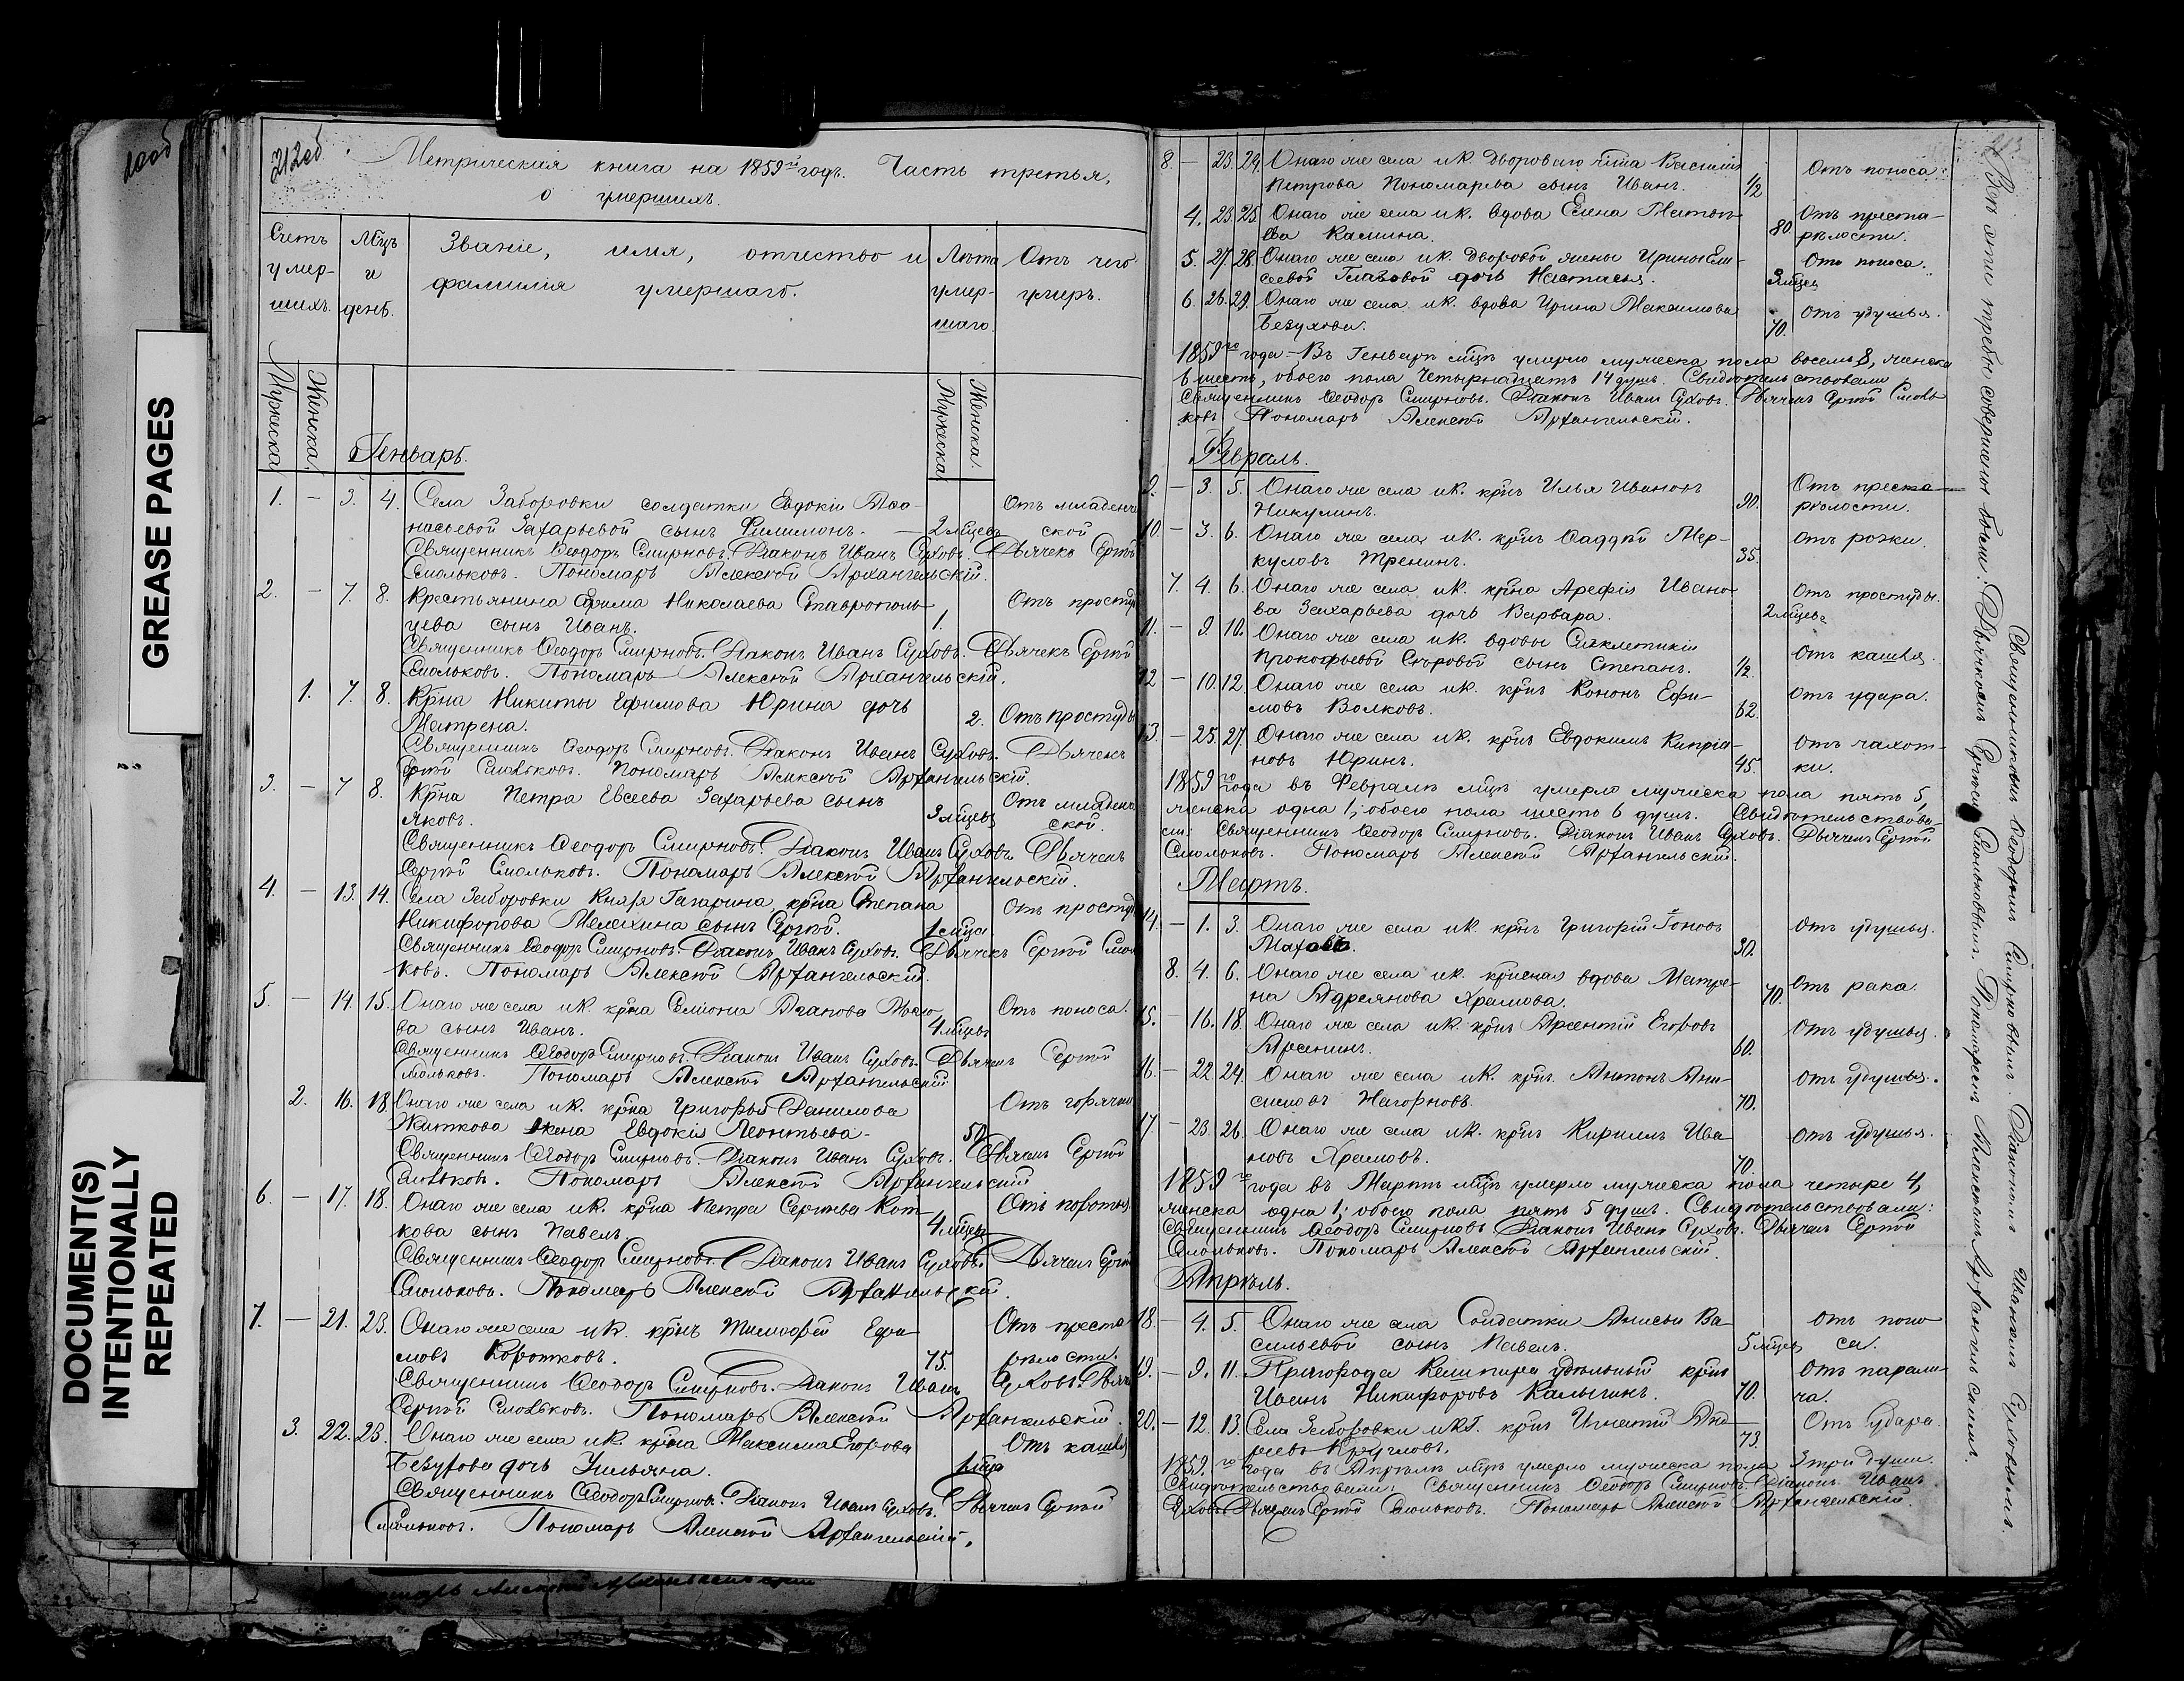 100об
GREASE PAGES
DOCUMENT(S)
INTENTIONALLY
REPEATED
212об
Метрическая книга на 1859й годъ. Часть третья,
о умершихъ.
Счетъ умер-шихъ.
Мцъ и день.
Званіе, имя, отчество и фамилія умершаго.
Лѣта умер-шаго.
Отъ чего умеръ.
Мужеска.
Женска.
Мужеска.
Женска.
Генварь.
1. – 3. 4. Села Заборовки солдатки Евдокіи Аѳа- Отъ младенче
насьевой Захарьевой сынъ Филимонъ. – 2 мѣцевъ ской
Священникъ Ѳеодоръ Смирновъ. Діаконъ Иванъ Суховъ. Дьячекъ Сергѣй
Смольковъ. Пономарь Алексѣй Архангельскій.
2. – 7. 8. Крестьянина Ефима Николаева Ставрополь- Отъ простуд
цева сынъ Иванъ. 1.
Священникъ Ѳеодоръ Смирновъ. Діаконъ Иванъ Суховъ. Дьячекъ Сергѣй
Смольковъ. Пономарь Алексѣй Архангельскій.
1. 7. 8. Крнa Никиты Ефимова Юрина дочь
Матрена. 2. Отъ простуды
Священникъ Ѳеодоръ Смирновъ. Діаконъ Иванъ Суховъ. Дьячекъ
Сергѣй Смольковъ. Пономарь Алексѣй Архангельскій.
3. – 7 8. Крнa Петра Евсеева Захарьева сынъ Отъ младенч
Яковъ. 3 мѣцевъ ской.
Священникъ Ѳеодоръ Смирновъ. Діаконъ Иванъ Суховъ. Дьячекъ
Сергѣй Смольковъ. Пономарь Алексѣй Архангельскій.
4. – 13. 14. Села Заборовки Князя Гагарина крнa Степана Отъ простуд
Никифорова Мелехина сынъ Сергѣй. 1 мѣца
Священникъ Ѳеодоръ Смирновъ. Діаконъ Иванъ Суховъ. Дьячекъ Сергѣй Смол
ковъ. Пономарь Алексѣй Архангельскій.
5. – 14. 15. Онаго же села и К. крнa Семіона Агапова Отъ поноса.
ва сынъ Иванъ. 4 мѣцевъ
Священникъ Ѳеодоръ Смирновъ. Діаконъ Иванъ Суховъ. Дьячекъ Сергѣй
Смольковъ. Пономарь Алексѣй Архангельскій
2. 16. 18 Онаго же села и К. крнa Григорья Данилова Отъ горячки
Житкова жена Евдокія Леонтьева – 50.
Священникъ Ѳеодоръ Смирновъ. Діаконъ Иванъ Суховъ. Дьячекъ Сергѣй
Смольковъ. Пономарь Алексѣй Архангельскій
6. – 17. 18. Онаго же села и К. крнa Петра Сергѣева Кот-
кова сынъ Павелъ 4 мѣцевъ
Священникъ Ѳеодоръ Смирновъ. Діаконъ Иванъ Суховъ. Дьячекъ Сергѣй
Смольковъ. Пономарь Алексѣй Архангельскій.
7. – 21. 23. Онаго же села и К. крнъ Тимоѳей Ефи- Отъ преста
мовъ Коротковъ. 75. рѣлости.
Священникъ Ѳеодоръ Смирновъ. Діаконъ Иванъ Суховъ. Дьяч
Сергѣй Смольковъ. Пономарь Алексѣй Архангельскій.
3. 22. 23. Онаго же села и К. крнa Максима Егорова Отъ кашля
Безухова дочь Ульяна. 1 мѣца
Священникъ Ѳеодоръ Смирновъ. Діаконъ Иванъ Суховъ. Дьячекъ Сергѣй
Смольковъ. Пономарь Алексѣй Архангельскій.
213
8. – 23. 24. Онаго же села и К. Дворовaго чвка Василія Отъ поноса.
Петрова Пономарева сынъ Иванъ. 1/2
4. 23. 25. Онаго же села и К. вдова Елена Отъ преста-
ева Калинина. 80. рѣлости.
5. 27. 28. Онаго же села и К. Дворовой жены Ирины Ели- Отъ поноса.
сеевой Глазовой дочь Настасья. 3 мѣцев
6. 26. 29. Онаго же села и К. вдова Ирина Максимова Отъ удушья.
Безухова. 70.
1859го года – Въ Генварѣ мцѣ умерло мужеска пола восемь 8, женска
6 шесть, обоего пола четырнадцать 14 душъ. Свидѣтельствовали
Священникъ Ѳеодоръ Смирновъ. Діаконъ Иванъ Суховъ. Дьячекъ Сергѣй Смоль
ковъ. Пономарь Алексѣй Архангельскій.
Февраль.
9. – 3. 5. Онаго же села и К. крнъ Илья Ивановъ Отъ преста-
Никулинъ. 90. рѣлости.
10. – 3. 6. Онаго же села и К. крнъ Ѳаддѣй Мер- Отъ рожи.
куловъ Тренинъ. 35.
7. 4. 6. Онаго же села и К. крнa Арефія Ивано- Отъ простуды.
ва Захарьева дочь Варвара. 2 мѣцевъ
11. – 9. 10. Онаго же села и К. вдовы Синклетикіи Отъ кашля.
Прокофьевой сынъ Степанъ. 1/2.
12 – 10. 12. Онаго же села и К. крнъ Кононъ Ефи- Отъ удара.
мовъ Волковъ. 62.
13. – 25. 27. Онаго же села и К. крнъ Евдокимъ Кипріа- Отъ чахот-
новъ Юринъ. 45. ки.
1859го года въ Февралѣ мцѣ умерло мужеска пола пять 5,
женска одна 1; обоего пола шесть 6 душъ. Свидѣтельствова-
ли: Священникъ Ѳеодоръ Смирновъ. Діаконъ Иванъ Суховъ. Дьячекъ Сергѣй
Смольковъ. Пономарь Алексѣй Архангельскій.
Мартъ.
14. – 1. 3. Онаго же села и К. крнъ Григорій Іоновъ Отъ удушья.
Маховъ. 30.
8. 4. 6. Онаго же села и К. крнская вдова Матре- Отъ рака.
на Адреянова Храмова. 70.
15. – 16. 18. Онаго же села и К. крнъ Арсентій Егоровъ Отъ удушья.
Арсенинъ. 60.
16. – 22 24. Онаго же села и К. крнъ Антонъ Ани- Отъ удушья.
симовъ Нагорновъ. 70.
17 – 23. 26. Онаго же села и К. крнъ Кириллъ Ива- Отъ удушья.
новъ Храмовъ. 70.
1859го года въ Мартѣ мцѣ умерло мужеска пола четыре 4,
женска одна 1; обоего пола пять 5 душъ. Свидѣтельствовали:
Священникъ Ѳеодоръ Смирновъ Діаконъ Иванъ Суховъ. Дьячекъ Сергѣй
Смольковъ. Пономарь Алексѣй Архангельскій.
Апрѣль.
18. – 4. 5. Онаго же села Солдатки Анисьи Ва- Отъ поно
сильевой сынъ Павелъ. 5 мѣцевъ са.
19. – 9. 11. Пригорода Кашпира удѣльный крнъ Отъ парали-
Иванъ Никифоровъ Калыгинъ. 70. ча.
20. – 12. 13. Села Заборовки и К. Г. крнъ Игнатій Анд- Отъ удара.
реевъ Кругловъ. 73.
1859го года въ Апрѣлѣ мцѣ умерло мужеска пола 3 три души.
Свидѣтельствовали: Священникъ Ѳеодоръ Смирновъ. Діаконъ Иванъ
Суховъ. Дьячекъ Сергѣй Смольковъ. Пономарь Алексѣй Архангельскій.
Всѣ эти требы совершены были: Священникомъ Ѳеодоромъ Смирновымъ. Діакономъ Иваномъ Суховымъ.
Дьячкомъ Сергѣемъ Смольковымъ. Пономаремъ Алексѣемъ Архангельскимъ.